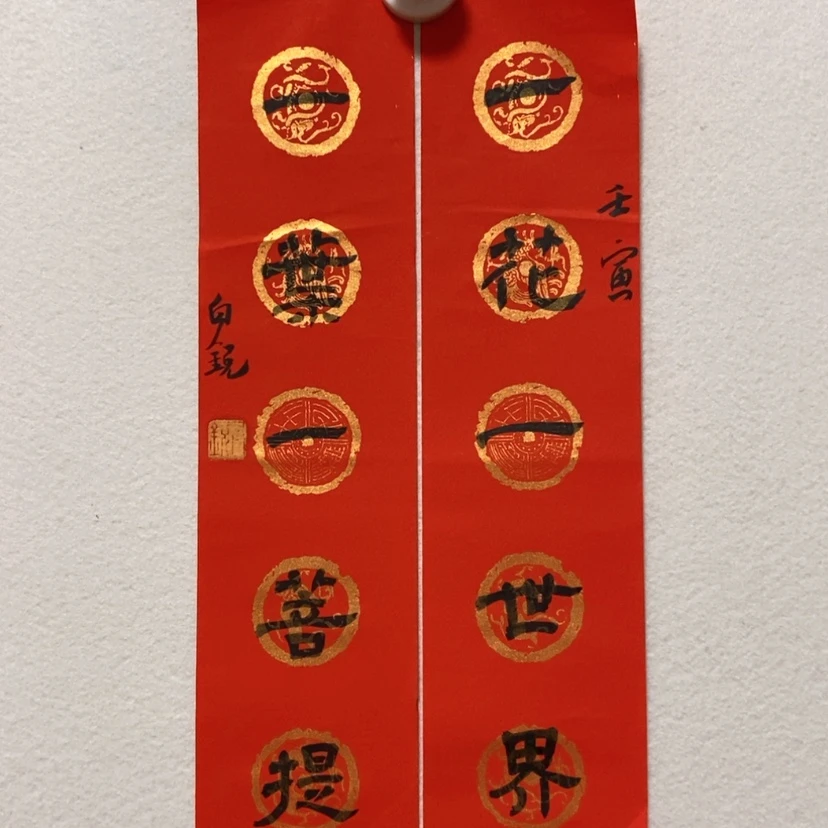 壬寅
一花一世界
一葉一菩提
白銳